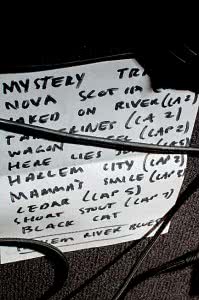 MYSTERY TRA
NOVA SCOTIA
ON RIVER (CAP 2)
TANGERINES (CAP 2)
WAGON (CAP 2)
HERE LIES (CAP 5)
HARLEM CITY (CAP 2)
MAMMA'S SMILE (CAP 2)
CEDAR (CAP 5)
SHORT STOUT (CAP 7)
BLACK CAT
RIVER BLUES